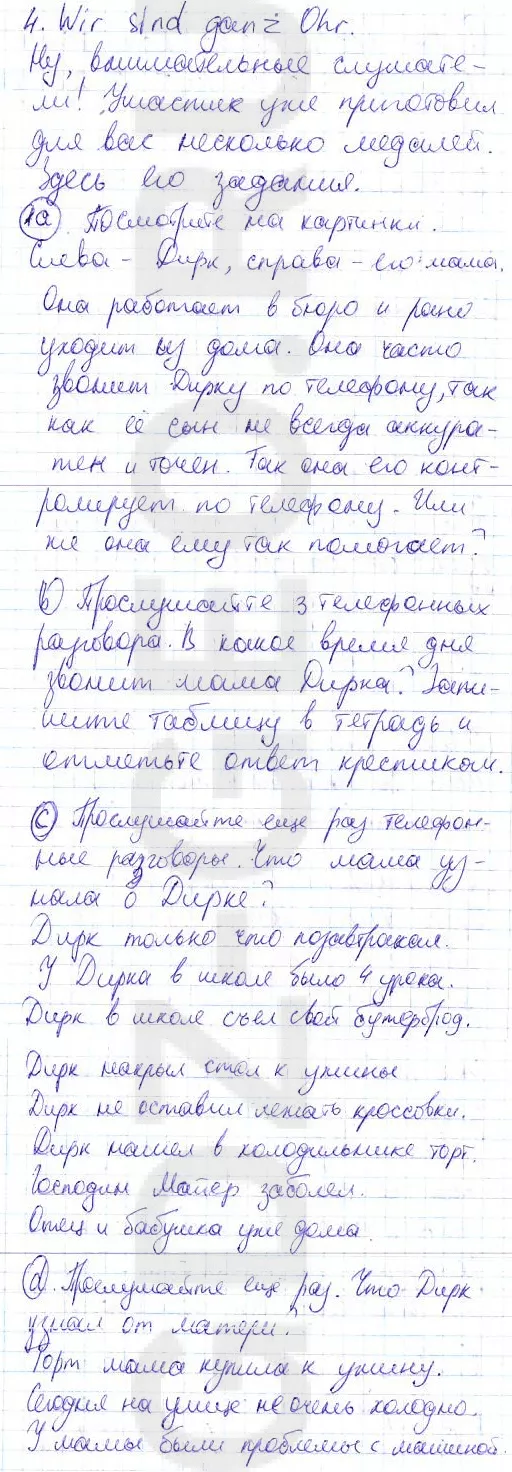 4. Wir sind ganz Ohr.
Ну, внимательные слушате-
ли! Ушастик уже приготовил
для вас несколько медалей.
Здесь его задания.
1a. Посмотрите на картинки.
Слева - Дирк, справа - его мама.
Она работает в бюро и рано
уходит из дома. Она часто
звонит Дирку по телефону, так
как её сын не всегда аккура-
тен и точен. Так она его конт-
ролирует по телефону. Или
же она ему так помогает?
b) Прослушайте 3 телефонных
разговора. В какое время дня
звонит мама Дирка? Запи-
шите таблицу в тетрадь и
отметьте ответ крестиком.
c) Прослушайте еще раз телефон-
ные разговоры. Что мама уз-
нала о Дирке?
Дирк только что позавтракал.
У Дирка в школе было 4 урока.
Дирк в школе съел свой бутерброд.
Дирк накрыл стол к ужины
Дирк не оставил лежать кроссовки.
Дирк нашел в холодильнике торт.
Господин Майер заболел.
Отец и бабушка уже дома.
d. Прослушайте еще раз. Что Дирк
узнал от матери.
Торт мама купила к ужину.
Сегодня на улице не очень холодно.
У мамы были проблемы с машиной.
GDZ-GEO.RU